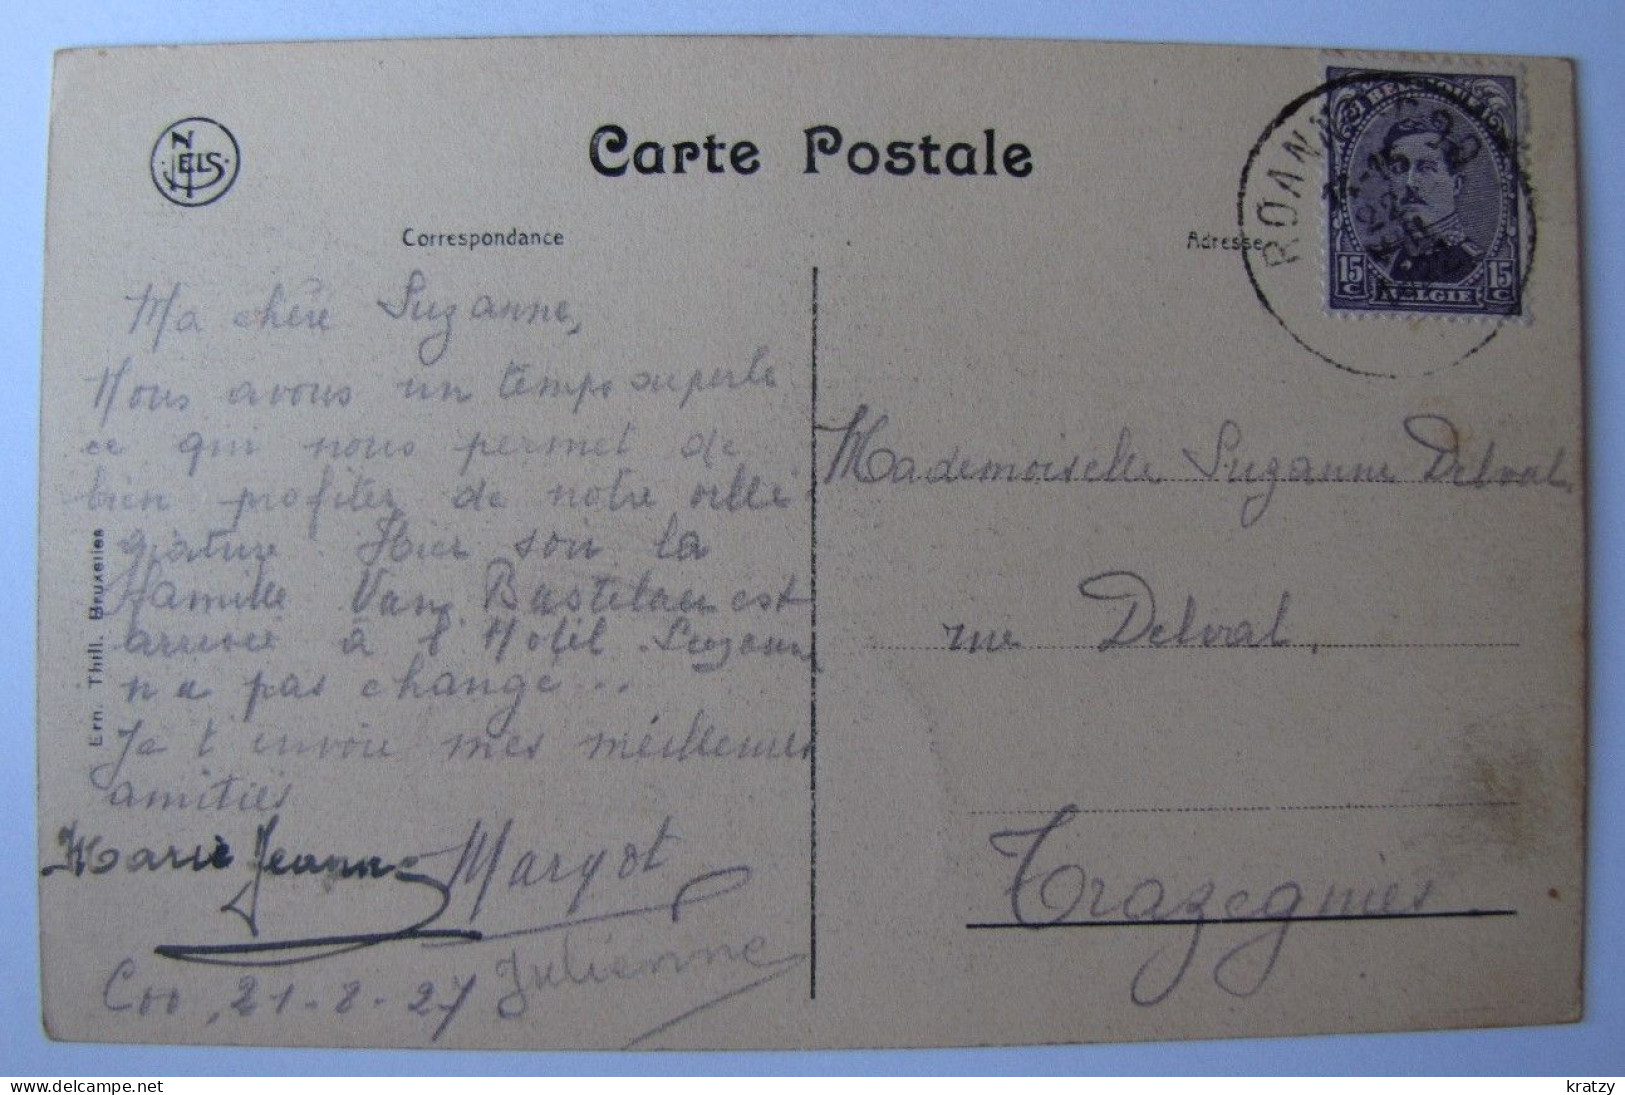 NELS
Carte Postale
Correspondance
Adresse
Ma chère Suzanne,
Nous avons un temps superbe
ce qui nous permet de
bien profiter de notre villé
giature. Hier soir la
famille Van est
arrivée à l'Hotel. Suzanne
n'a pas changé...
Je t'envoie mes meilleures
amitiés
Marie Jeanne
Margot
Julienne
Coo, 21-8-27
Ern. Thill. Bruxelles
Mademoiselle Suzanne Delval
rue Delval,
Trazegnies
ROANNE-COO
BELGIQUE
15 C
15 C
BELGIE
kratzy